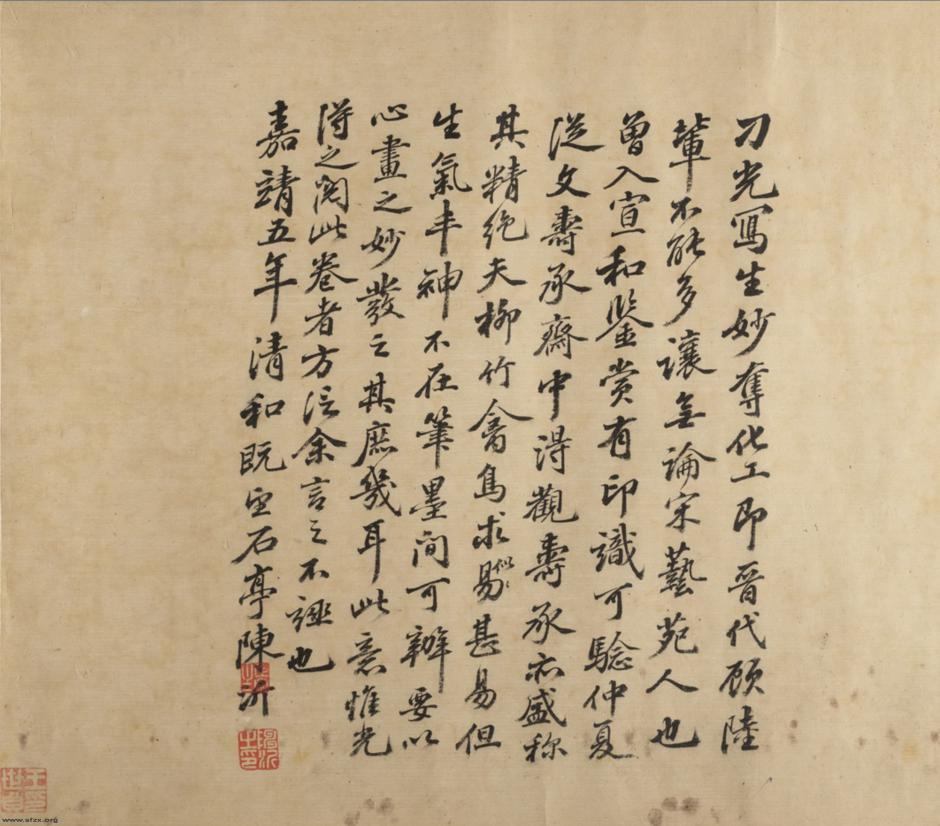 刁光寫生妙奪化工即晉代顧陸
輩不能多讓無論宋藝苑人也
曾入宣和鑒賞有印識可驗仲夏
從文壽承齋中得觀壽承亦盛稱
其精絶夫柳竹禽鳥求似易甚易但
生氣丰神不在筆墨間可辦要以
心畫之妙發之其庶幾耳此意惟光
得之閱此卷者方信余言之不誣也
嘉靖五年清和既望石亭陳沂
www.sfzx.org